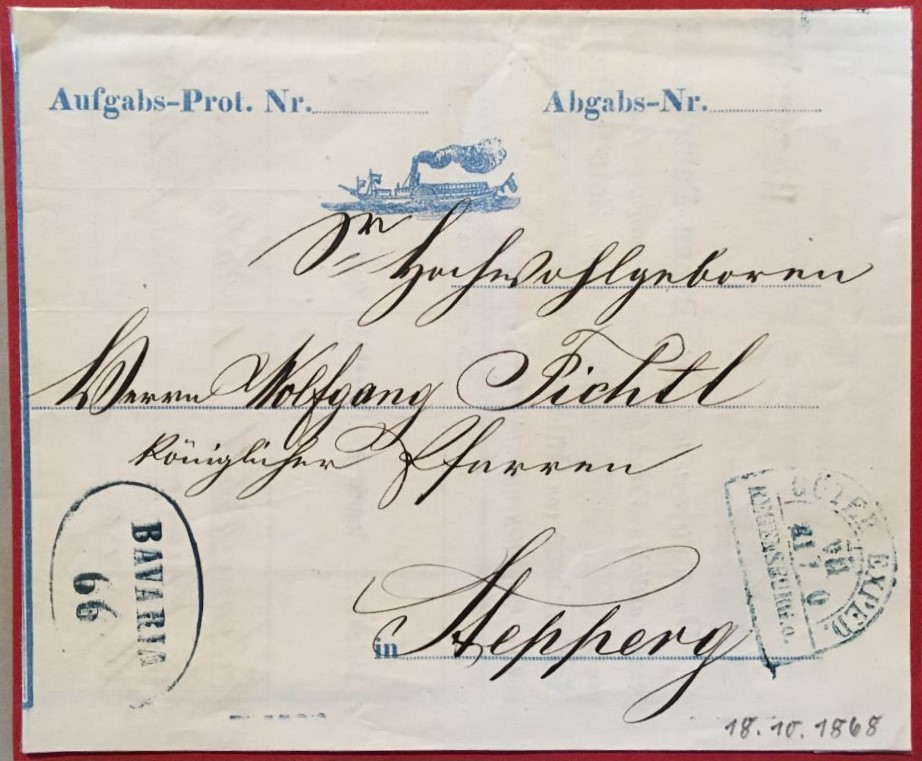 Aufgabs-Prot. Nr.
Abgabs-Nr.
Sr Hochwohlgeboren
Herrn Wolfgang Fichtl
Königlicher Pfarrer
in Stepperg
BAVARIA
66
GÜTER-EXPED.
REGENSBURG
18.10.1868